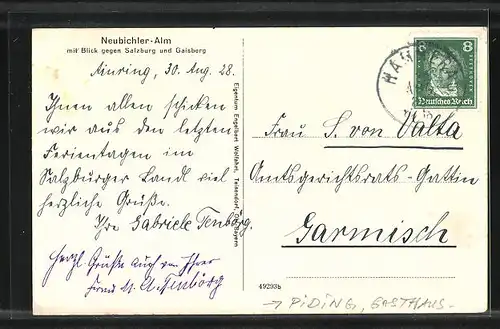 Neubichler-Alm
mit Blick gegen Salzburg und Gaisberg
Ainring, 30. Aug. 28.
Ihnen allen schicken
wir aus den letzten
Ferientagen im
Salzburger Land viel
herzliche Grüße.
Ihre Gabriele Tenbörg.
Herzl. Grüße auch von Ihrer
Eigentum Engelbert Wolfahrt, Teisendorf, Obb. Bayern
8 8
Deutsches Reich
Frau S. von Valta
Amtsgerichtsrats-Gattin
Garmisch
49293b
→ PIDING, GASTHAUS-